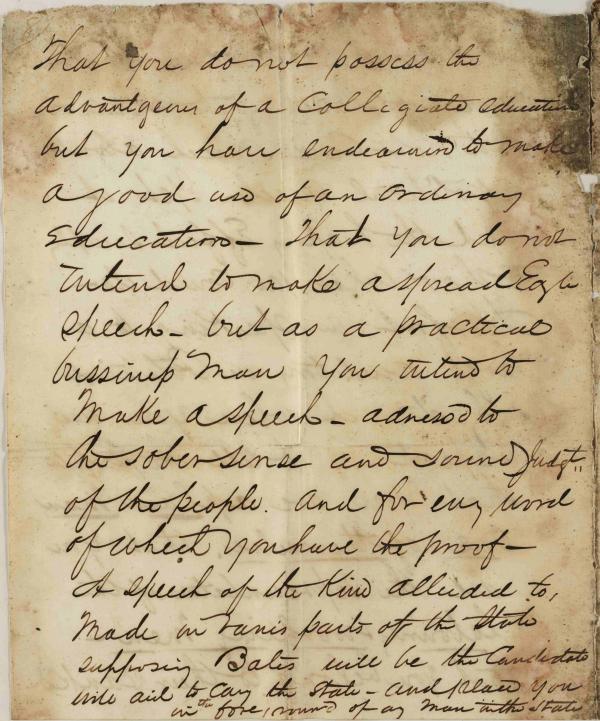 That you do not possess the
advantgeous of a Collegiate education
but you have endeavored to make
a good use of an ordinary
Education — That you do not
intend to make a spread Eagle
speech — but as a practical
bussiness Man you intend to
Make a speech — adressd to
the sober sense and sound Judgt"
of the people. and for evry word
of which you have the proof —
A speech of the Kind alluded to,
Made in varis parts of the State
supposing Bates will be the Candidate
will aid to cary the State — and place you
in the fore ground of any man in the State